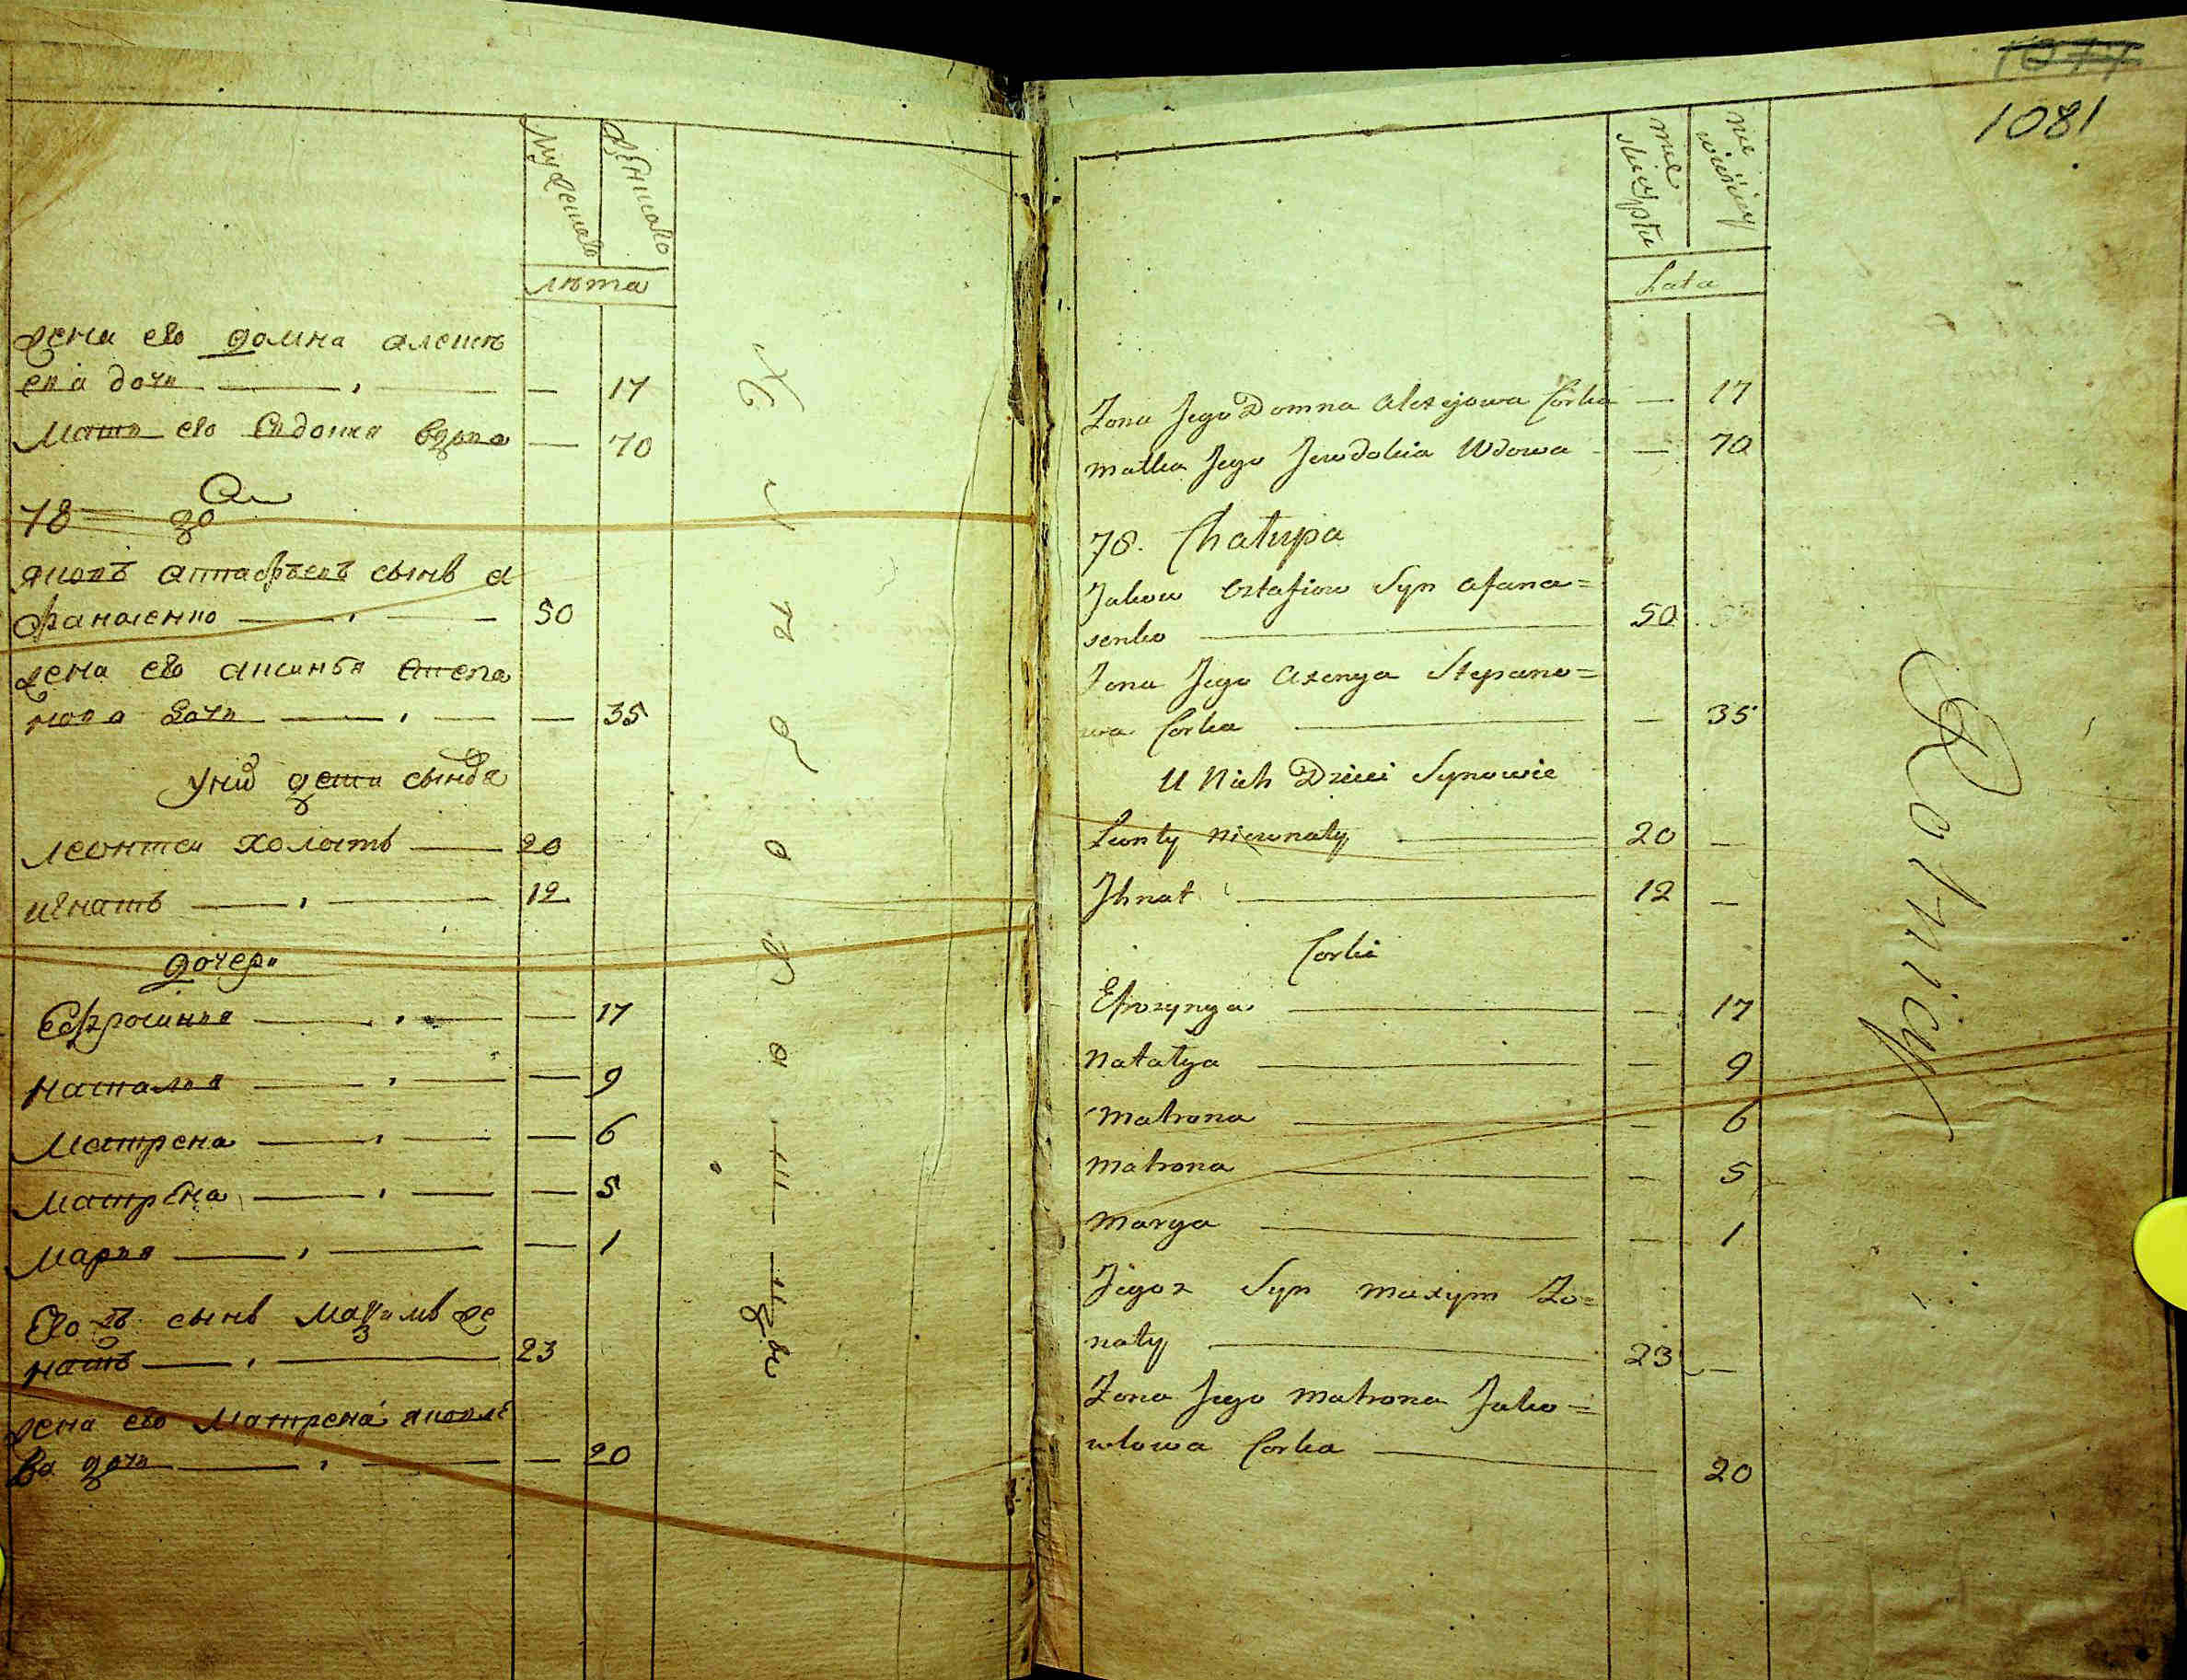 мужеска
женска
лѣта
жена его домна алекѣ
ева дочь — — — 17
мать его Евдокия вдова — 70
78
яковъ аставьевъ сынъ а
фанасенко — — 50
жена его аксинья степа
нова дочь — — — 35
у них дети сыновья
леонтеи холостъ — 20
игнатъ — — 12
дочери
Ефросинья — — — 17
наталья — — — 9
матрена — — — 6
матрена — — — 5
марья — — — 1
его жъ сынъ мазимъ же
натъ — — 23
жена его матрена яковле
ва дочь — — — 20
1077
1081
Lata
Zona Jego Domna Alexejowa Corka — 17
Matka Jego Jewdokia Wdowa — 70
78. Chałupa
Jakow Ostafiow Syn Afana=
senko — 50
Zona Jego Axenya Stepano=
wa Corka — — 35
U Nich Dzieci Synowie
Leonty Nieżonaty — 20 —
Jhnat — 12 —
Corki
Efrozynya — — 17
Natalya — — 9
Matrona — — 6
Matrona — — 5
Marya — — 1
Jegoz Syn Maxym Zo=
naty — 23 —
Zona Jego Matrona Jako=
wlowa Corka — 20
Rolnicy